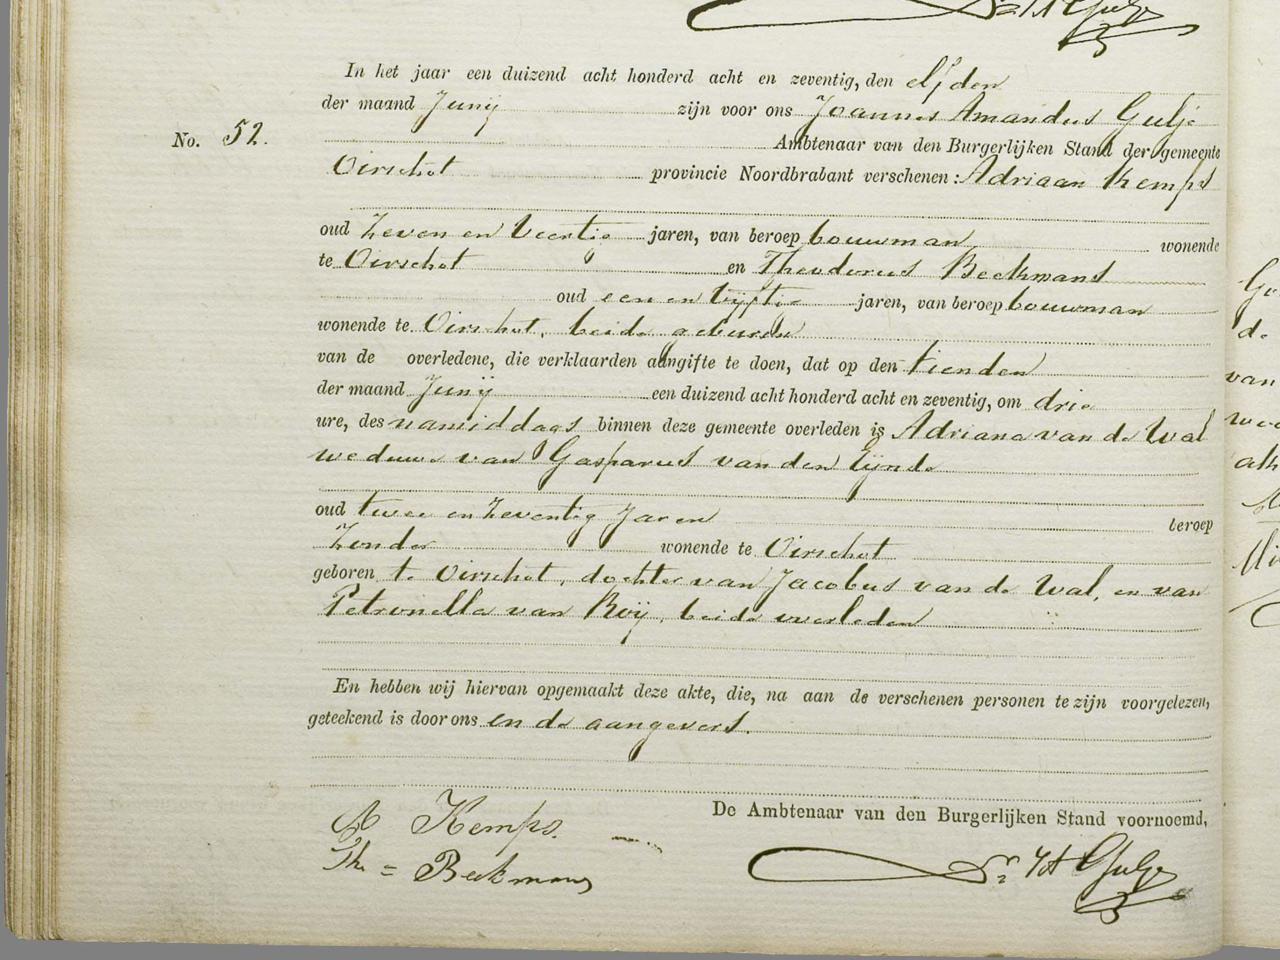 In het jaar een duizend acht honderd acht en zeventig, den elfden
der maand Junij zijn voor ons Joannes Amandus Gulje
No. 52. Ambtenaar van den Burgerlijken Stand der gemeente
Oirschot provincie Noordbrabant verschenen: Adriaan Kemps
oud Zeven en Veertig jaren, van beroep bouwman wonende
te Oirschot en Theodorus Beekmans
oud een en Vijftig jaren, van beroep bouwman
wonende te Oirschot, beide geburen
van de overledene, die verklaarden aangifte te doen, dat op den tienden
der maand Junij een duizend acht honderd acht en zeventig, om drie
ure, des namiddags binnen deze gemeente overleden is Adriana van de Wal
weduwe van Gasparus van den Eijnde
oud twee en Zeventig Jaren beroep
Zonder wonende te Oirschot
geboren te Oirschot, dochter van Jacobus van de Wal, en van
Petronella van Roij, beide overleden
En hebben wij hiervan opgemaakt deze akte, die, na aan de verschenen personen te zijn voorgelezen,
geteekend is door ons en de aangevers.
De Ambtenaar van den Burgerlijken Stand voornoemd,
A Kemps.
Th = Beekmans
Dr JA Gulje